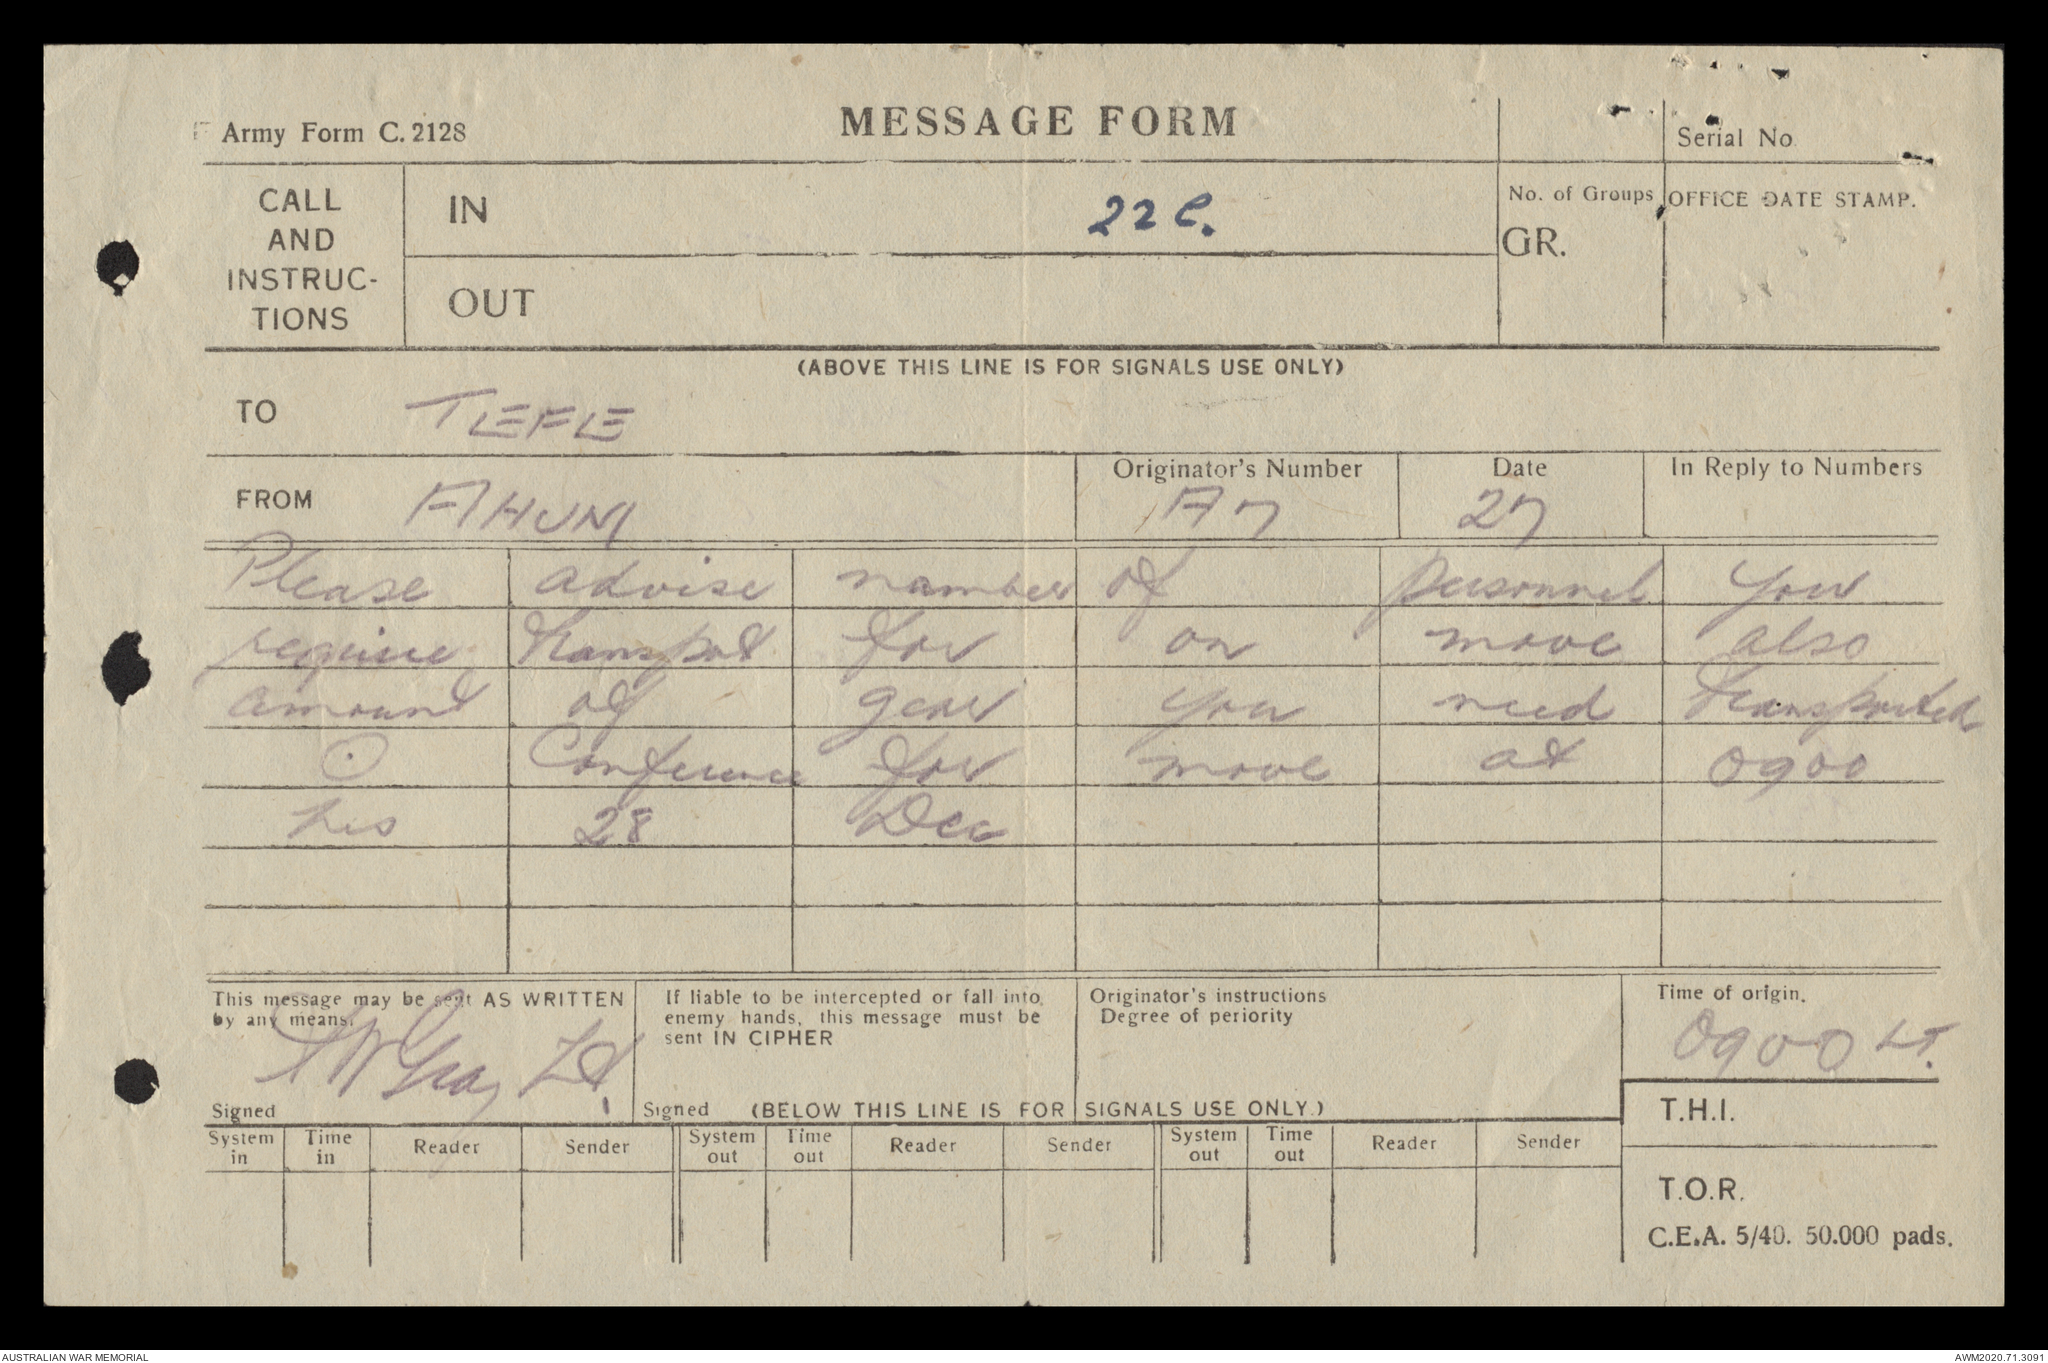 Army Form C. 2128
MESSAGE FORM
Serial No
CALL
AND
INSTRUC-
TIONS
IN
22 C.
OUT
No. of Groups
GR.
OFFICE DATE STAMP.
(ABOVE THIS LINE IS FOR SIGNALS USE ONLY)
TO TEFLE
FROM AHUM
Originator's Number
A7
Date
27
In Reply to Numbers
Please advise number of personnel you
require transport for on move also
amount of gear you need transported
⊙ Conference for move at 0900
hrs 28 Dec
This message may be sent AS WRITTEN
by any means.
Gray Lt.
Signed
If liable to be intercepted or fall into
enemy hands, this message must be
sent IN CIPHER
Signed
Originator's instructions
Degree of periority
Time of origin.
0900 LT.
(BELOW THIS LINE IS FOR SIGNALS USE ONLY.)
T.H.I.
T.O.R.
System in
Time in
Reader
Sender
System out
Time out
Reader
Sender
System out
Time out
Reader
Sender
C.E.A. 5/40. 50.000 pads.
AUSTRALIAN WAR MEMORIAL
AWM2020.71.3091